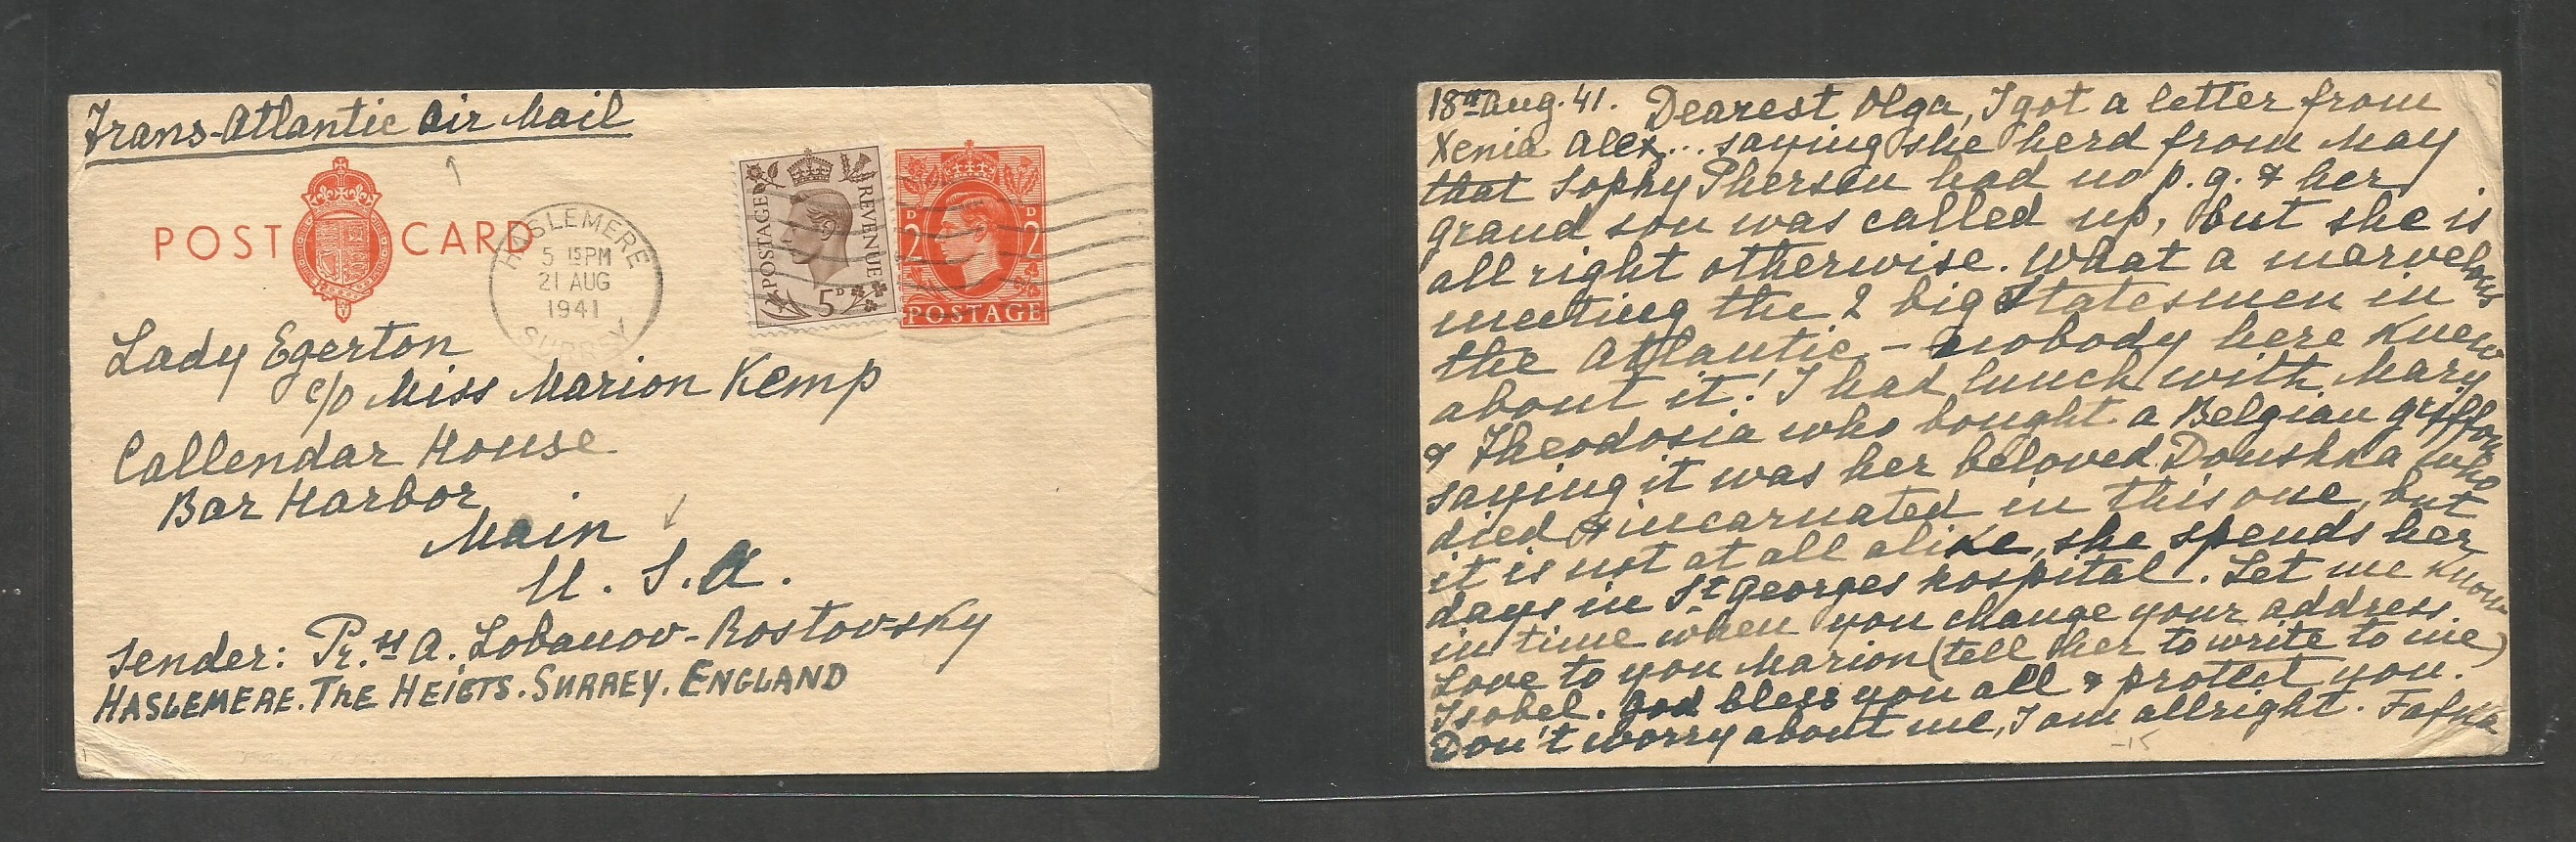 Trans-Atlantic Air Mail
POST CARD
HASLEMERE
5 15 PM
21 AUG
1941
SURREY
POSTAGE REVENUE
5D
2D 2D
POSTAGE
Lady Egerton
c/o Miss Marion Kemp
Callendar House
Bar Harbor
Main
U. S. A.
Sender: Pr. ss A. Lobanov-Rostovsky
HASLEMERE. THE HEIGTS. SURREY. ENGLAND
18th Aug. 41. Dearest Olga, I got a letter from
Xenia Alex... saying she herd from May
that Sophy Phersen had no p. g. & her
grand son was called up, but she is
all right otherwise. What a marvelous
meeting the 2 big Statesmen in
the Atlantic - nobody here knew
about it! I had lunch with Mary
& Theodosia who bought a Belgian griffon
saying it was her beloved Doushka who
died & incarnated in this one, but
it is not at all alike, she spends her
days in St Georges hospital. Let me know
in time when you change your address.
Love to you Marion (tell her to write to me)
Isobel. God bless you all & protect you.
Don't worry about me, I am allright. Fafka
-15